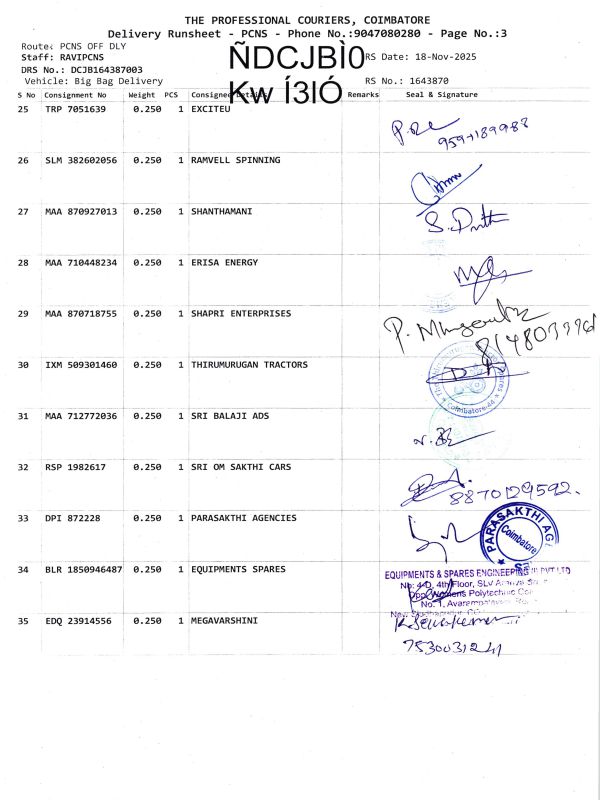 THE PROFESSIONAL COURIERS, COIMBATORE
Delivery Runsheet - PCNS - Phone No.:9047080280 - Page No.:3
Route: PCNS OFF DLY
Staff: RAVIPCNS
DRS No.: DCJB164387003
Vehicle: Big Bag Delivery
ÑDCJBÌ0
Kw Í3IÓ
RS Date: 18-Nov-2025
RS No.: 1643870
S No Consignment No Weight PCS Consigned Details Remarks Seal & Signature
25 TRP 7051639 0.250 1 EXCITEU
26 SLM 382602056 0.250 1 RAMVELL SPINNING
27 MAA 870927013 0.250 1 SHANTHAMANI
28 MAA 710448234 0.250 1 ERISA ENERGY
29 MAA 870718755 0.250 1 SHAPRI ENTERPRISES
30 IXM 509301460 0.250 1 THIRUMURUGAN TRACTORS
Coimbatore-44
31 MAA 712772036 0.250 1 SRI BALAJI ADS
32 RSP 1982617 0.250 1 SRI OM SAKTHI CARS
8870129592.
33 DPI 872228 0.250 1 PARASAKTHI AGENCIES
PARASAKTHI AG
Coimbatore
34 BLR 1850946487 0.250 1 EQUIPMENTS SPARES
EQUIPMENTS & SPARES ENGINEERING PVT LTD
No: 4-D, 4th Floor, SLV
Opp. Womens Polytechnic
No: 1,
35 EDQ 23914556 0.250 1 MEGAVARSHINI
7530031241